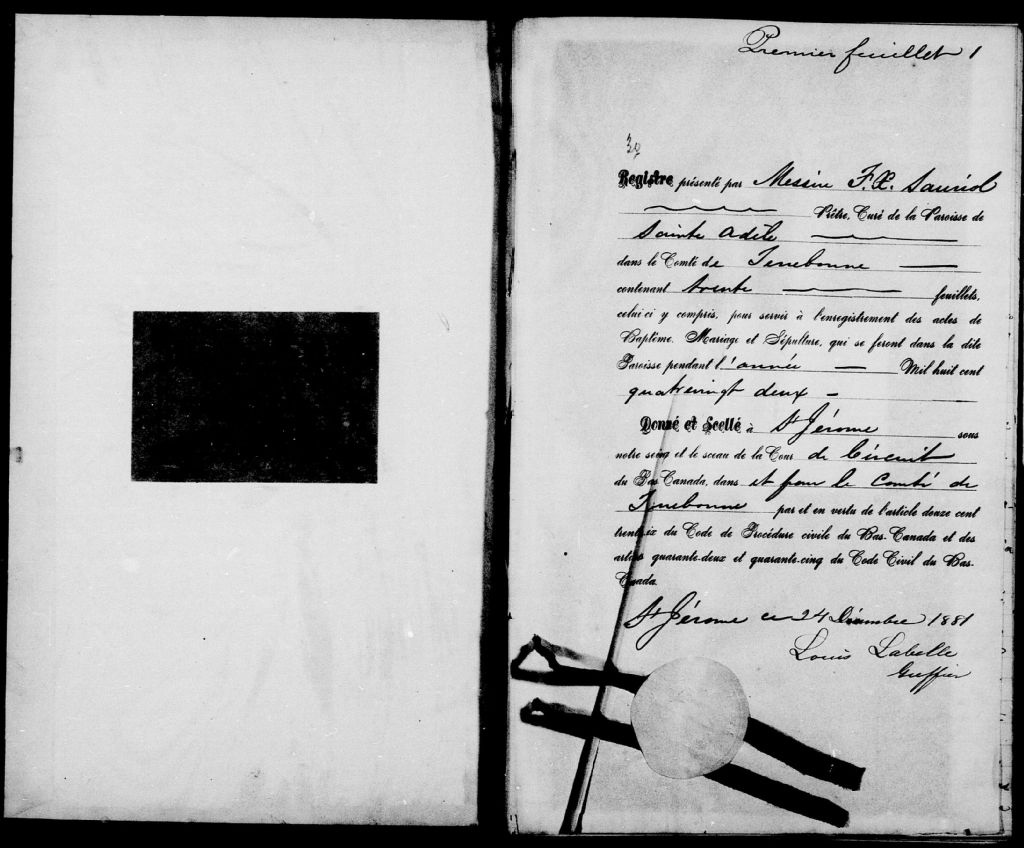 Premier feuillet 1
30
Registre, présenté par Messire F. X. Sauriol
Prêtre, Curé de la Paroisse de
Sainte Adèle
dans le Comté de Terrebonne
contenant trente feuillets,
celui-ci y compris, pour servir à l'enregistrement des actes de
Baptême, Mariage et Sépulture, qui se feront dans la dite
Paroisse pendant l'année Mil huit cent
quatrevingt deux
Donné et Scellé à St Jérome sous
notre seing et le sceau de la Cour de Circuit
du Bas Canada, dans et pour le Comté de
Terrebonne par et en vertu de l'article douze cent
trente-six du Code de Procédure civile du Bas-Canada et des
articles quarante-deux et quarante-cinq du Code Civil du Bas-
Canada.
St Jérome ce 24 Décembre 1881
Louis Labelle
Greffier